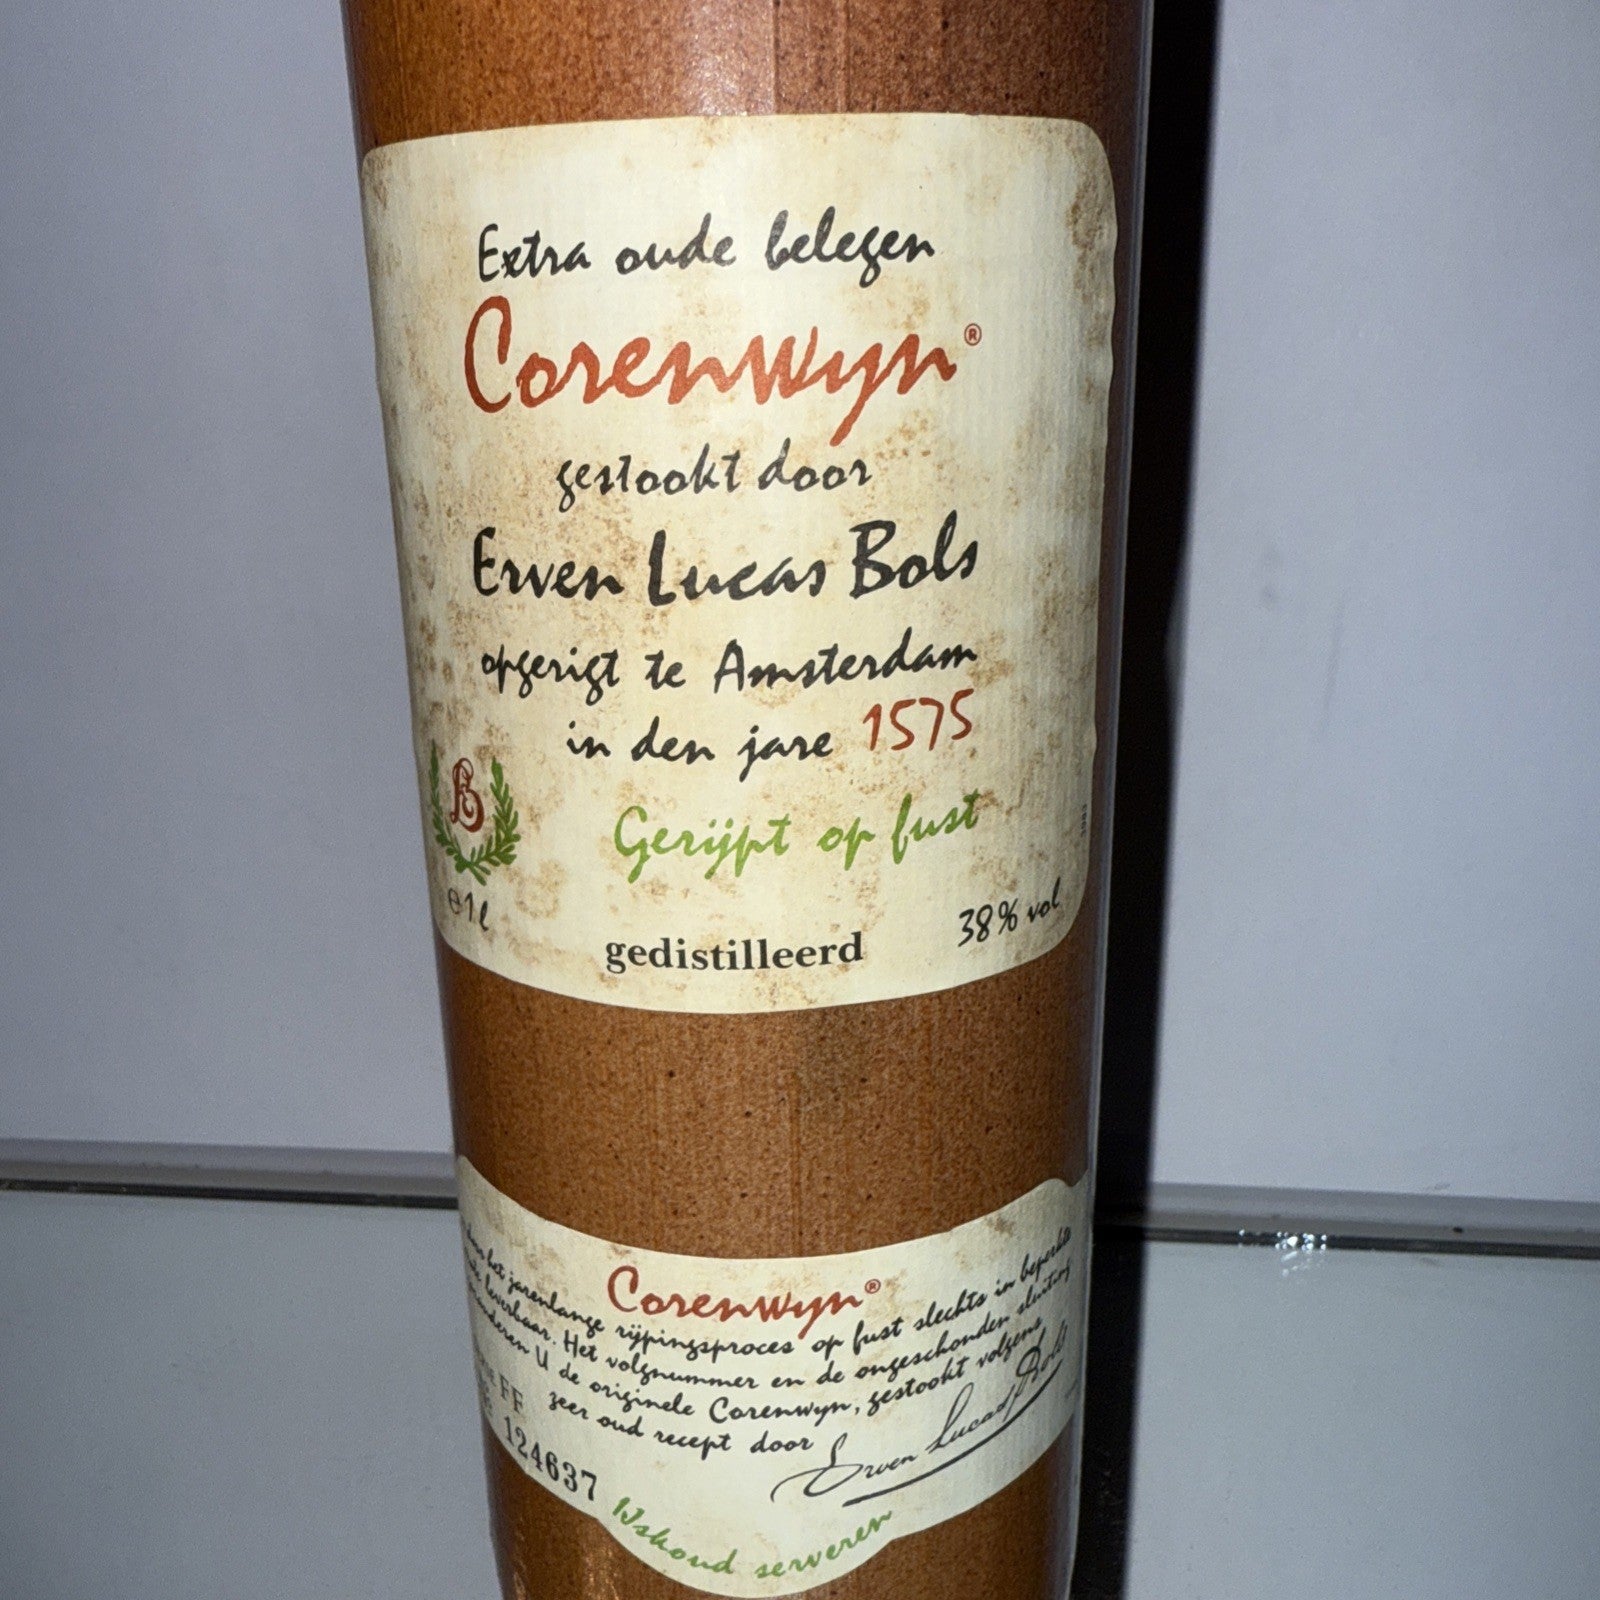 Extra oude belegen
Corenwyn®
gestookt door
Erven Lucas Bols
opgerigt te Amsterdam
in den jare 1575
Gerijpt op fust
e 1 l
38% vol
gedistilleerd
Corenwyn®
het jarenlange rijpingsproces op fust slechts in beperkte
leverbaar. Het volgnummer en de ongeschonden sluiting
U de originele Corenwyn, gestookt volgens
zeer oud recept door
Erven Lucas Bols
FF
124637
IJskoud serveren